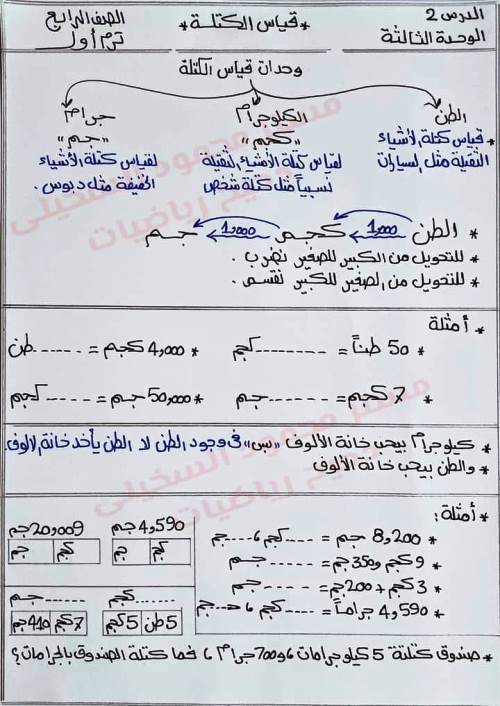 الدرس 2
الوحدة الثالثة
* قياس الكتلة *
الصف الرابع
ترم أول
وحدات قياس الكتلة
الطن
* قياس كتلة الأشياء
الثقيلة مثل السيارات
الكيلوجرام
"كجم"
لقياس كتلة الأشياء الثقيلة
نسبياً مثل كتلة شخص
جرام
"جم"
لقياس كتلة الأشياء
الخفيفة مثل دبوس.
* الطن 1,000 كجم 1,000 جم
* للتحويل من الكبير للصغير نضرب.
* للتحويل من الصغير للكبير نقسم.
* أمثلة
* 50 طناً = -------- كجم
* 4,000 كجم = ------ طن
* 7 كجم = ------ جم
* 50,000 جم = ----- كجم
* كيلوجرام بيحب خانة الألوف "بس" في وجود الطن لا الطن يأخد خانة الألوف.
* والطن بيحب خانة الألوف
* أمثلة:
* 8,200 جم = ---- كجم 6 ---- جم
* 9 كجم و350 جم = ----- جم
* 3 كجم + 200 جم = ----- جم
* 4,590 جراماً = ---- كجم 6 ---- جم
4,590 جم
كجم جم
20,009 جم
كجم جم
------ كجم
5 طن 5 كجم
------ جم
7 كجم 440 جم
* صندوق كتلتة 5 كيلوجرامات 6 و700 جرام 6 فما كتلة الصندوق بالجرامات؟
مستر محمود السخيلي
رياضيات
مستر محمود السخيلي
رياضيات